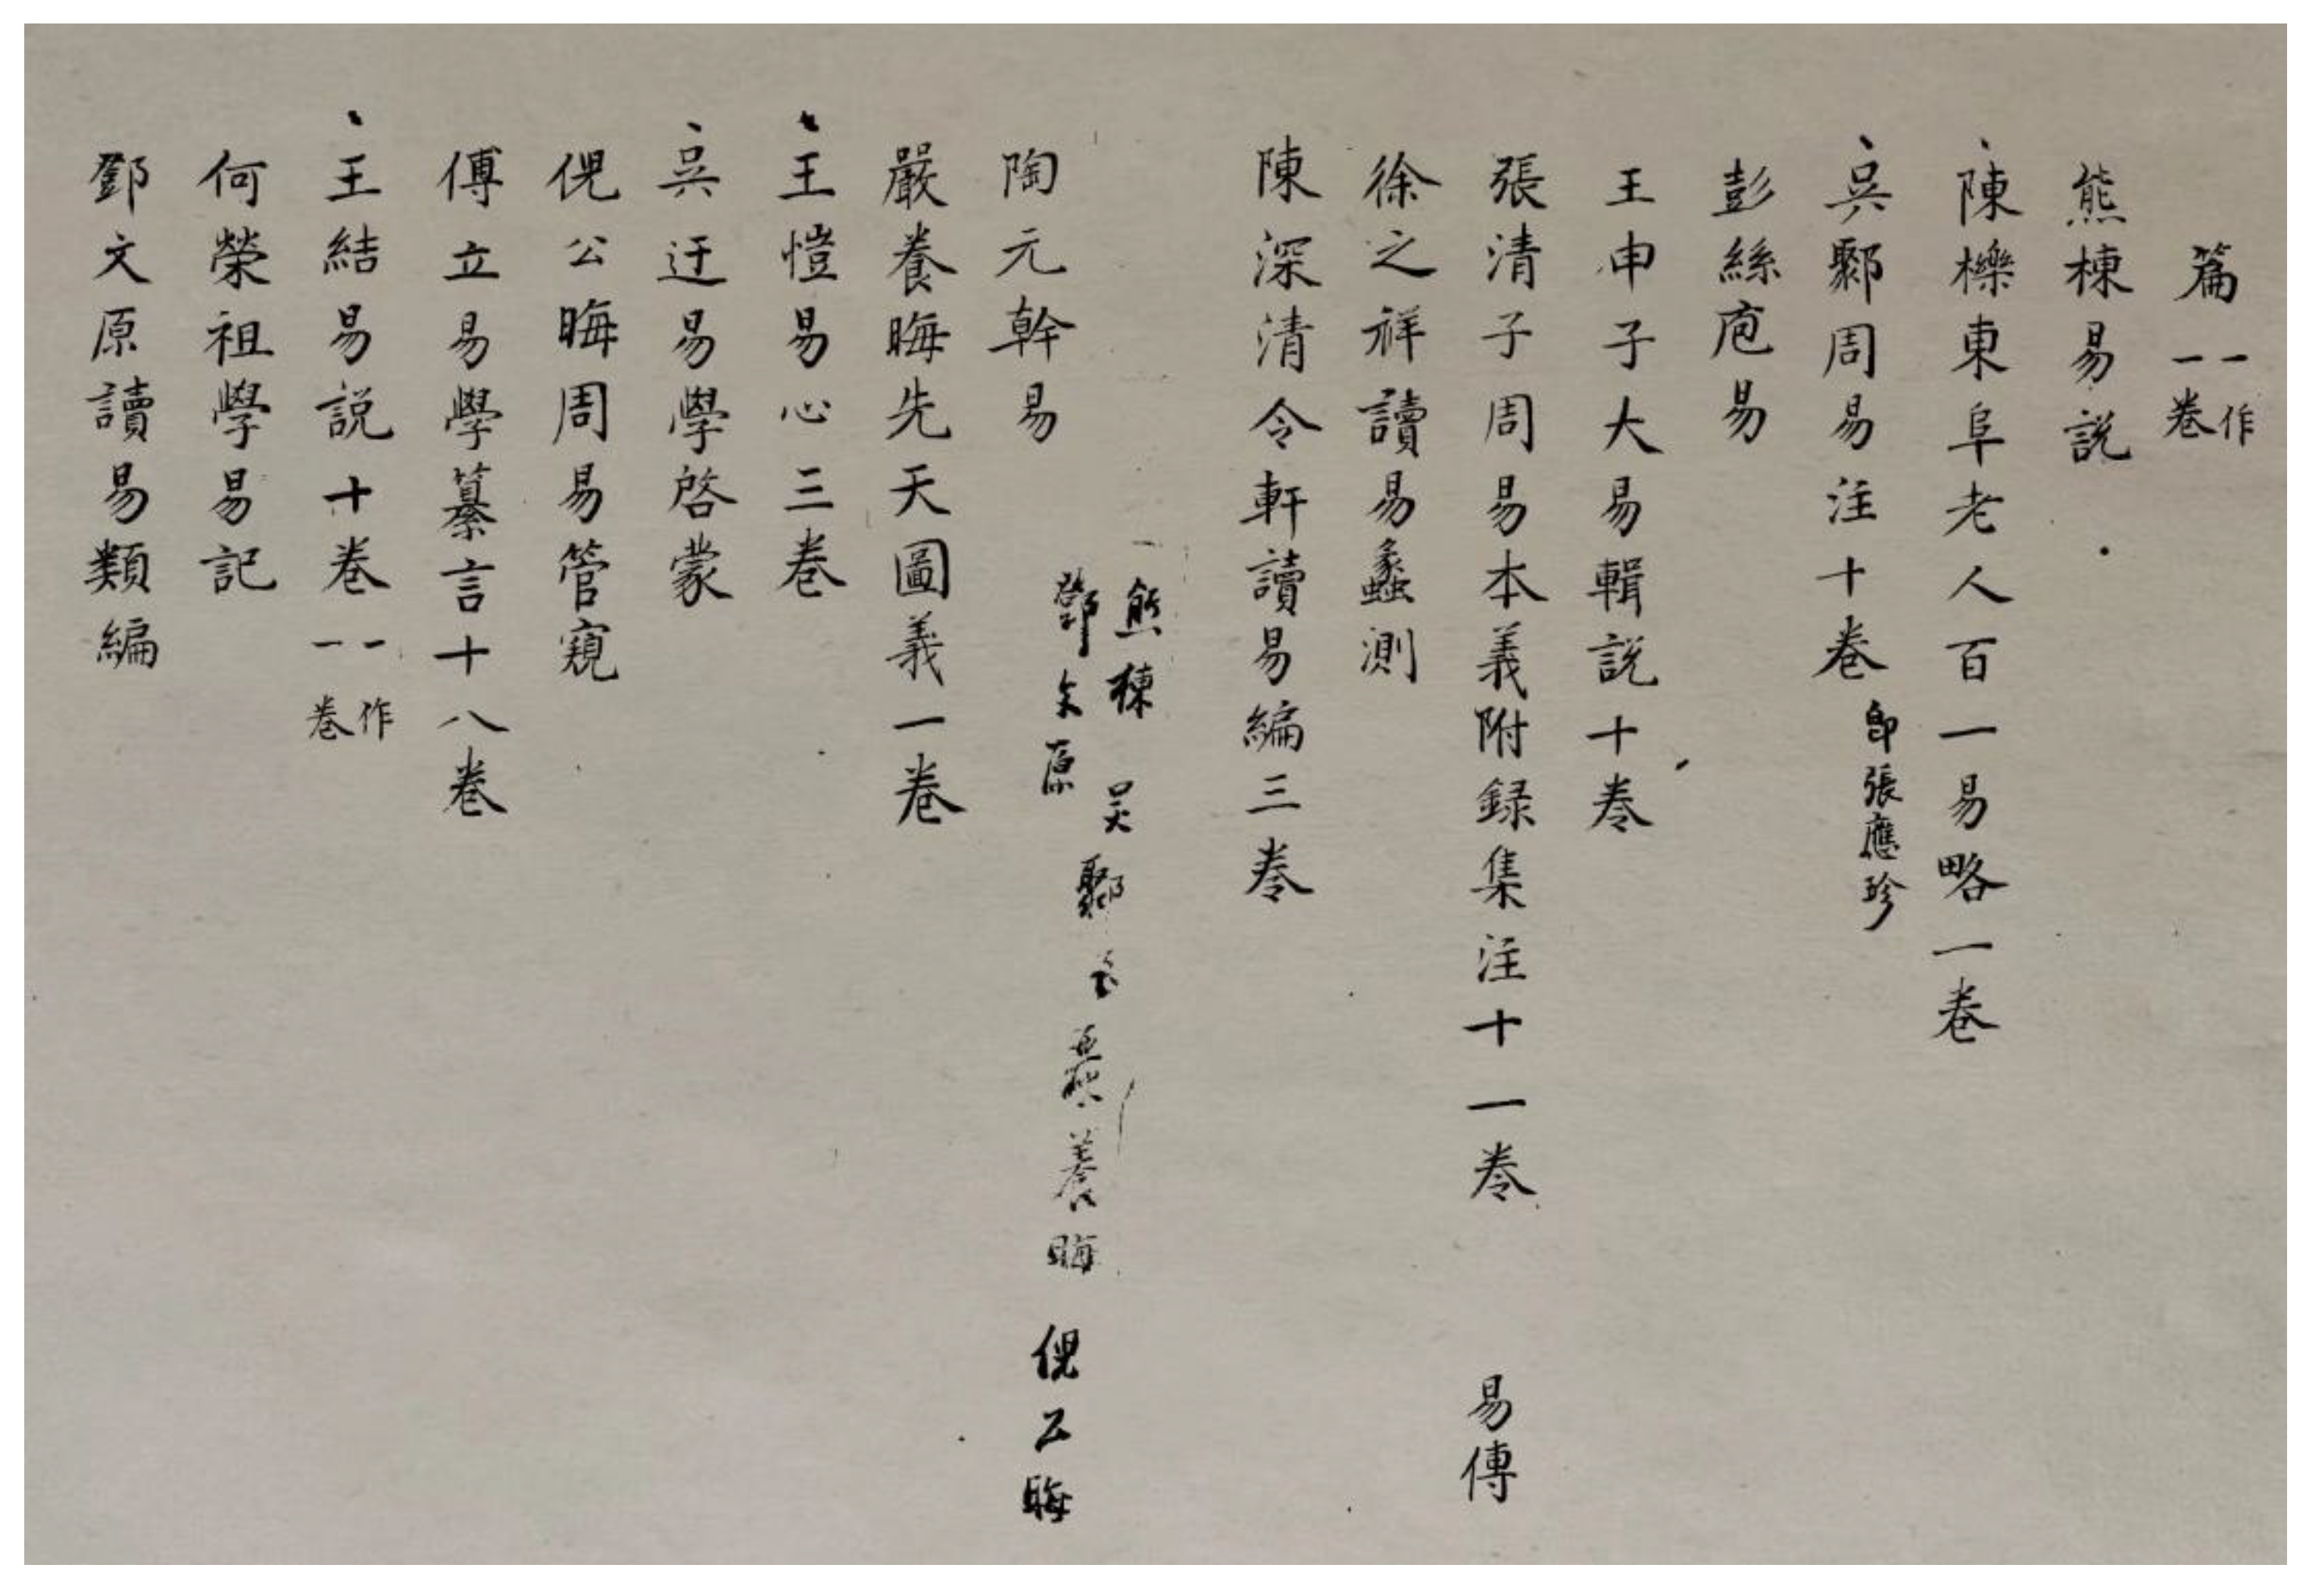 篇一作一卷
熊棟易説
陳櫟東阜老人百一易略一卷
吳鄹周易注十卷 即張應珍
彭絲庖易
王申子大易輯説十卷
張清子周易本義附録集注十一卷 易傳
徐之祥讀易蠡測
陳深清令軒讀易編三卷
熊棟 吴鄹 嚴養晦 倪公晦
鄧文原
陶元幹易
嚴養晦先天圖義一卷
王愷易心三卷
吳迂易學啓蒙
倪公晦周易管窺
傅立易學纂言十八卷
王結易説十卷一作一卷
何榮祖學易記
鄧文原讀易類編